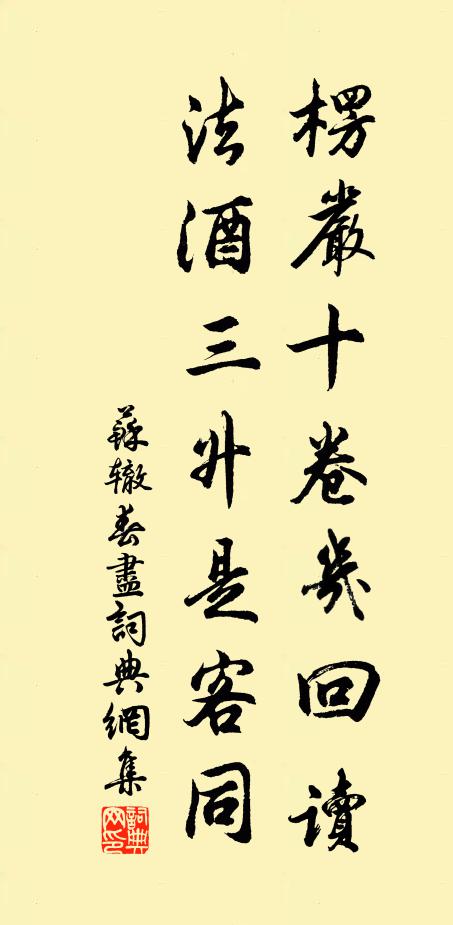 楞嚴十卷幾回讀
法酒三升是客同
蘇辙春盡詞典網集
詞典网印